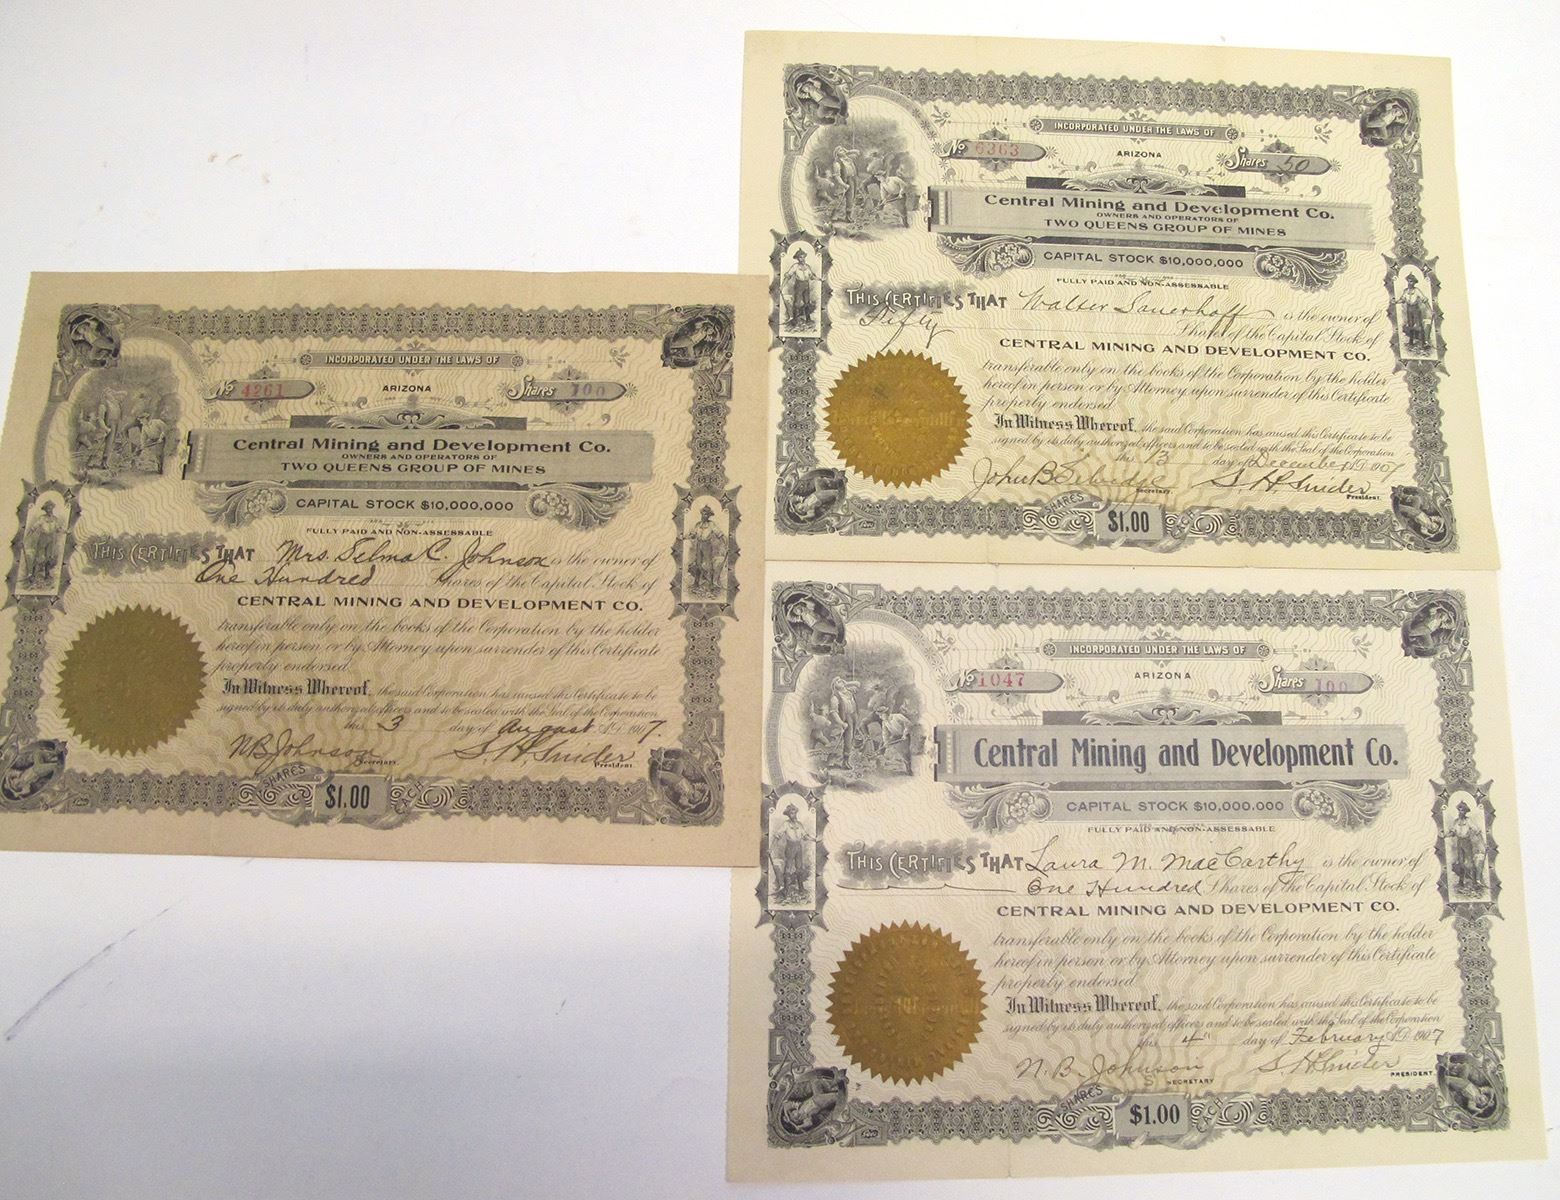 INCORPORATED UNDER THE LAWS OF
No 4261 ARIZONA Shares 100
Central Mining and Development Co.
OWNERS AND OPERATORS OF
TWO QUEENS GROUP OF MINES
CAPITAL STOCK $10,000,000
FULLY PAID AND NON-ASSESSABLE
THIS CERTIFIES THAT Mrs. Selma C. Johnson is the owner of
One Hundred Shares of the Capital Stock of
CENTRAL MINING AND DEVELOPMENT CO.
transferable only on the books of the Corporation by the holder
hereof in person or by Attorney upon surrender of this Certificate
properly endorsed.
In Witness Whereof, the said Corporation has caused this Certificate to be
signed by its duly authorized officers and to be sealed with the Seal of the Corporation
this 3 day of August A.D. 1907.
N.B. Johnson Secretary. S. H. Snider President.
SHARES $1.00
INCORPORATED UNDER THE LAWS OF
No 6363 ARIZONA Shares 50
Central Mining and Development Co.
OWNERS AND OPERATORS OF
TWO QUEENS GROUP OF MINES
CAPITAL STOCK $10,000,000
FULLY PAID AND NON-ASSESSABLE
THIS CERTIFIES THAT Walter Sauerhoff is the owner of
Fifty Shares of the Capital Stock of
CENTRAL MINING AND DEVELOPMENT CO.
transferable only on the books of the Corporation by the holder
hereof in person or by Attorney upon surrender of this Certificate
properly endorsed.
In Witness Whereof, the said Corporation has caused this Certificate to be
signed by its duly authorized officers and to be sealed with the Seal of the Corporation
this 3 day of December A.D. 1907
John B. Secretary. S. H. Snider President.
SHARES $1.00
INCORPORATED UNDER THE LAWS OF
No 1047 ARIZONA Shares 100
Central Mining and Development Co.
CAPITAL STOCK $10,000,000
FULLY PAID AND NON-ASSESSABLE
THIS CERTIFIES THAT Laura M. MacCarthy is the owner of
One Hundred Shares of the Capital Stock of
CENTRAL MINING AND DEVELOPMENT CO.
transferable only on the books of the Corporation by the holder
hereof in person or by Attorney upon surrender of this Certificate
properly endorsed.
In Witness Whereof, the said Corporation has caused this Certificate to be
signed by its duly authorized officers and to be sealed with the Seal of the Corporation
this 4" day of February A.D. 1907
N. B. Johnson SECRETARY S. H. Snider PRESIDENT.
SHARES $1.00